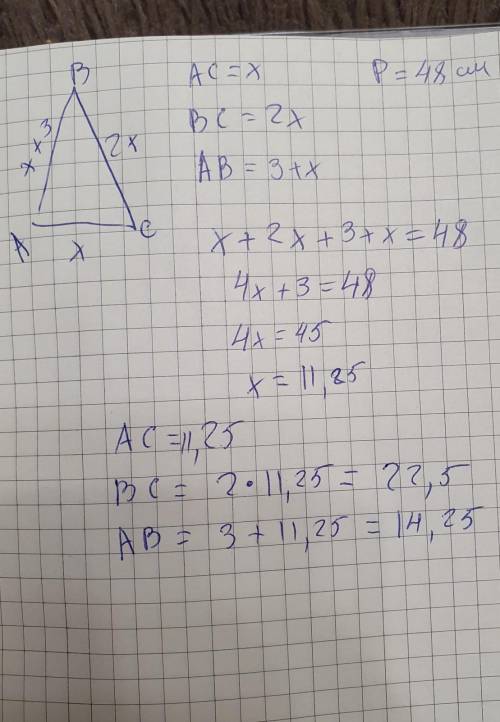 B
AC = x
P = 48 см
BC = 2x
AB = 3+x
3
x
x
2x
A
x
C
x + 2x + 3 + x = 48
4x + 3 = 48
4x = 45
x = 11,25
AC = 11,25
BC = 2 · 11,25 = 22,5
AB = 3 + 11,25 = 14,25